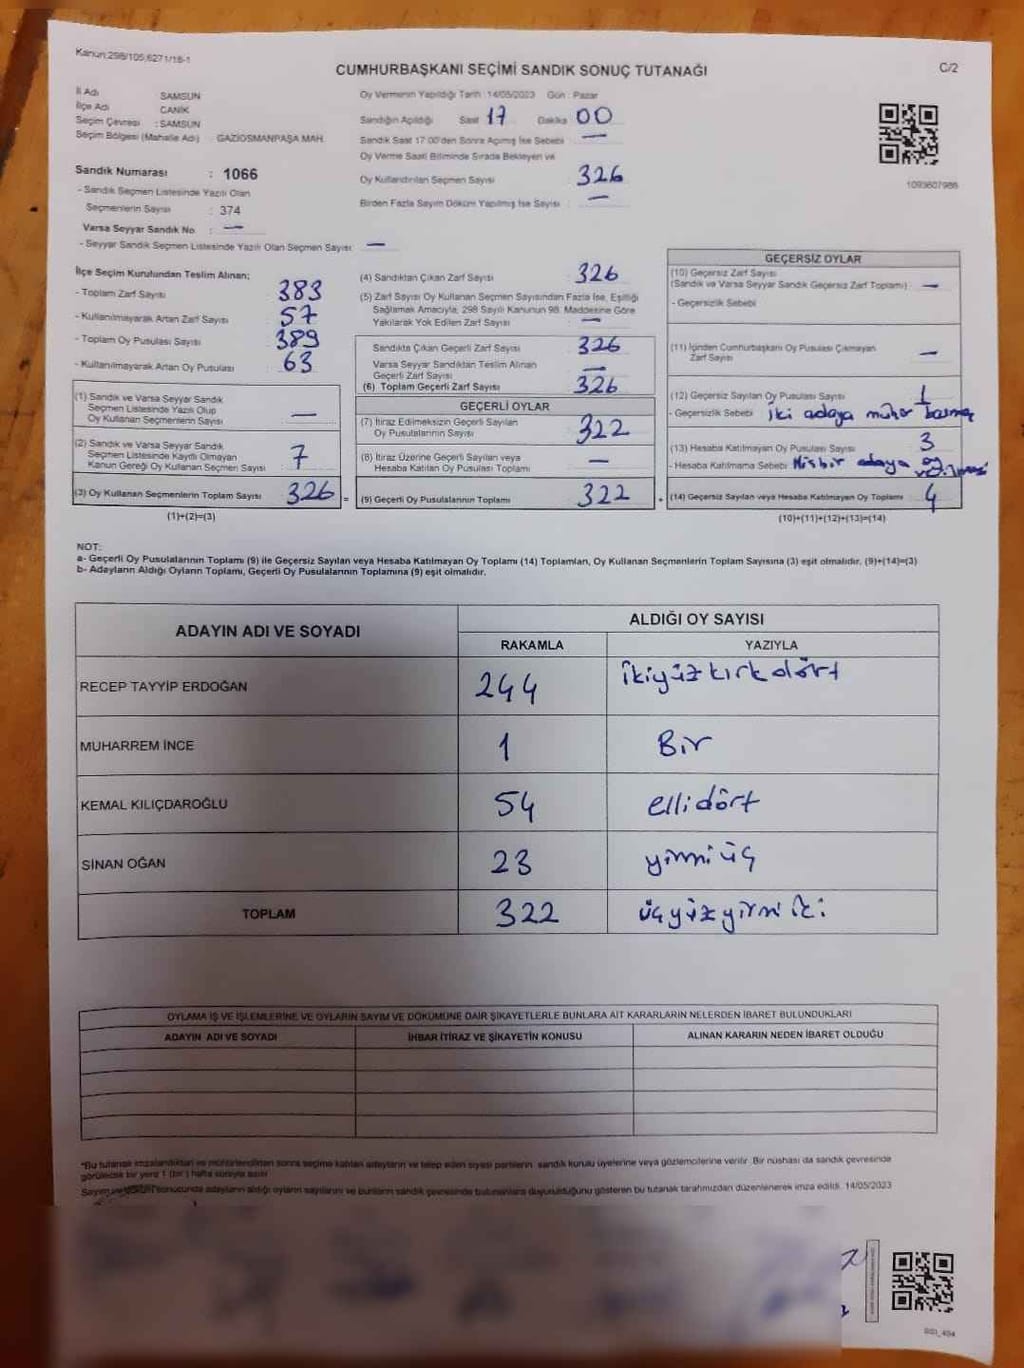 Kanun:298/105,6271/18-1
CUMHURBAŞKANI SEÇİMİ SANDIK SONUÇ TUTANAĞI
C/2
İl Adı SAMSUN
İlçe Adı CANİK
Seçim Çevresi : SAMSUN
Seçim Bölgesi (Mahalle Adı) : GAZİOSMANPAŞA MAH.
Sandık Numarası : 1066
- Sandık Seçmen Listesinde Yazılı Olan
Seçmenlerin Sayısı : 374
Varsa Seyyar Sandık No : —
- Seyyar Sandık Seçmen Listesinde Yazılı Olan Seçmen Sayısı : —
Oy Vermenin Yapıldığı Tarih : 14/05/2023 Gün : Pazar
Sandığın Açıldığı Saat 17 Dakika 00
Sandık Saat 17:00'den Sonra Açılmış İse Sebebi —
Oy Verme Saati Bitiminde Sırada Bekleyen ve
Oy Kullandırılan Seçmen Sayısı 326
Birden Fazla Sayım Döküm Yapılmış İse Sayısı —
1093607986
İlçe Seçim Kurulundan Teslim Alınan;
- Toplam Zarf Sayısı 383
- Kullanılmayarak Artan Zarf Sayısı 57
- Toplam Oy Pusulası Sayısı 389
- Kullanılmayarak Artan Oy Pusulası 63
(1) Sandık ve Varsa Seyyar Sandık
Seçmen Listesinde Yazılı Olup
Oy Kullanan Seçmenlerin Sayısı —
(2) Sandık ve Varsa Seyyar Sandık
Seçmen Listesinde Kayıtlı Olmayan
Kanun Gereği Oy Kullanan Seçmen Sayısı 7
(3) Oy Kullanan Seçmenlerin Toplam Sayısı 326 =
(1)+(2)=(3)
(4) Sandıktan Çıkan Zarf Sayısı 326
(5) Zarf Sayısı Oy Kullanan Seçmen Sayısından Fazla İse, Eşitliği
Sağlamak Amacıyla, 298 Sayılı Kanunun 98. Maddesine Göre
Yakılarak Yok Edilen Zarf Sayısı —
Sandıkta Çıkan Geçerli Zarf Sayısı 326
Varsa Seyyar Sandıktan Teslim Alınan
Geçerli Zarf Sayısı —
(6) Toplam Geçerli Zarf Sayısı 326
GEÇERLİ OYLAR
(7) İtiraz Edilmeksizin Geçerli Sayılan
Oy Pusulalarının Sayısı 322
(8) İtiraz Üzerine Geçerli Sayılan veya
Hesaba Katılan Oy Pusulası Toplamı —
(9) Geçerli Oy Pusulalarının Toplamı 322 +
GEÇERSİZ OYLAR
(10) Geçersiz Zarf Sayısı
(Sandık ve Varsa Seyyar Sandık Geçersiz Zarf Toplamı) —
- Geçersizlik Sebebi
(11) İçinden Cumhurbaşkanı Oy Pusulası Çıkmayan
Zarf Sayısı —
(12) Geçersiz Sayılan Oy Pusulası Sayısı 1
- Geçersizlik Sebebi iki adaya mühür basma
(13) Hesaba Katılmayan Oy Pusulası Sayısı 3
- Hesaba Katılmama Sebebi Hiçbir adaya oy verilmesi
(14) Geçersiz Sayılan veya Hesaba Katılmayan Oy Toplamı 4
(10)+(11)+(12)+(13)=(14)
NOT:
a- Geçerli Oy Pusulalarının Toplamı (9) ile Geçersiz Sayılan veya Hesaba Katılmayan Oy Toplamı (14) Toplamları, Oy Kullanan Seçmenlerin Toplam Sayısına (3) eşit olmalıdır. (9)+(14)=(3)
b- Adayların Aldığı Oyların Toplamı, Geçerli Oy Pusulalarının Toplamına (9) eşit olmalıdır.
ADAYIN ADI VE SOYADI
ALDIĞI OY SAYISI
RAKAMLA YAZIYLA
RECEP TAYYİP ERDOĞAN 244 ikiyüzkırkdört
MUHARREM İNCE 1 Bir
KEMAL KILIÇDAROĞLU 54 ellidört
SİNAN OĞAN 23 yirmiüç
TOPLAM 322 üçyüzyirmiiki
OYLAMA İŞ VE İŞLEMLERİNE VE OYLARIN SAYIM VE DÖKÜMÜNE DAİR ŞİKAYETLERLE BUNLARA AİT KARARLARIN NELERDEN İBARET BULUNDUKLARI
ADAYIN ADI VE SOYADI İHBAR İTİRAZ VE ŞİKAYETİN KONUSU ALINAN KARARIN NEDEN İBARET OLDUĞU
*Bu tutanak imzalandıktan ve mühürlendikten sonra seçime katılan adayların ve talep eden siyasi partilerin sandık kurulu üyelerine veya gözlemcilerine verilir. Bir nüshası da sandık çevresinde
görülecek bir yere 1 (bir) hafta süreyle asılır.
Sayım ve döküm sonucunda adayların aldığı oyların sayılarını ve bunların sandık çevresinde bulunanlara duyurulduğunu gösteren bu tutanak tarafımızdan düzenlenerek imza edildi. 14/05/2023